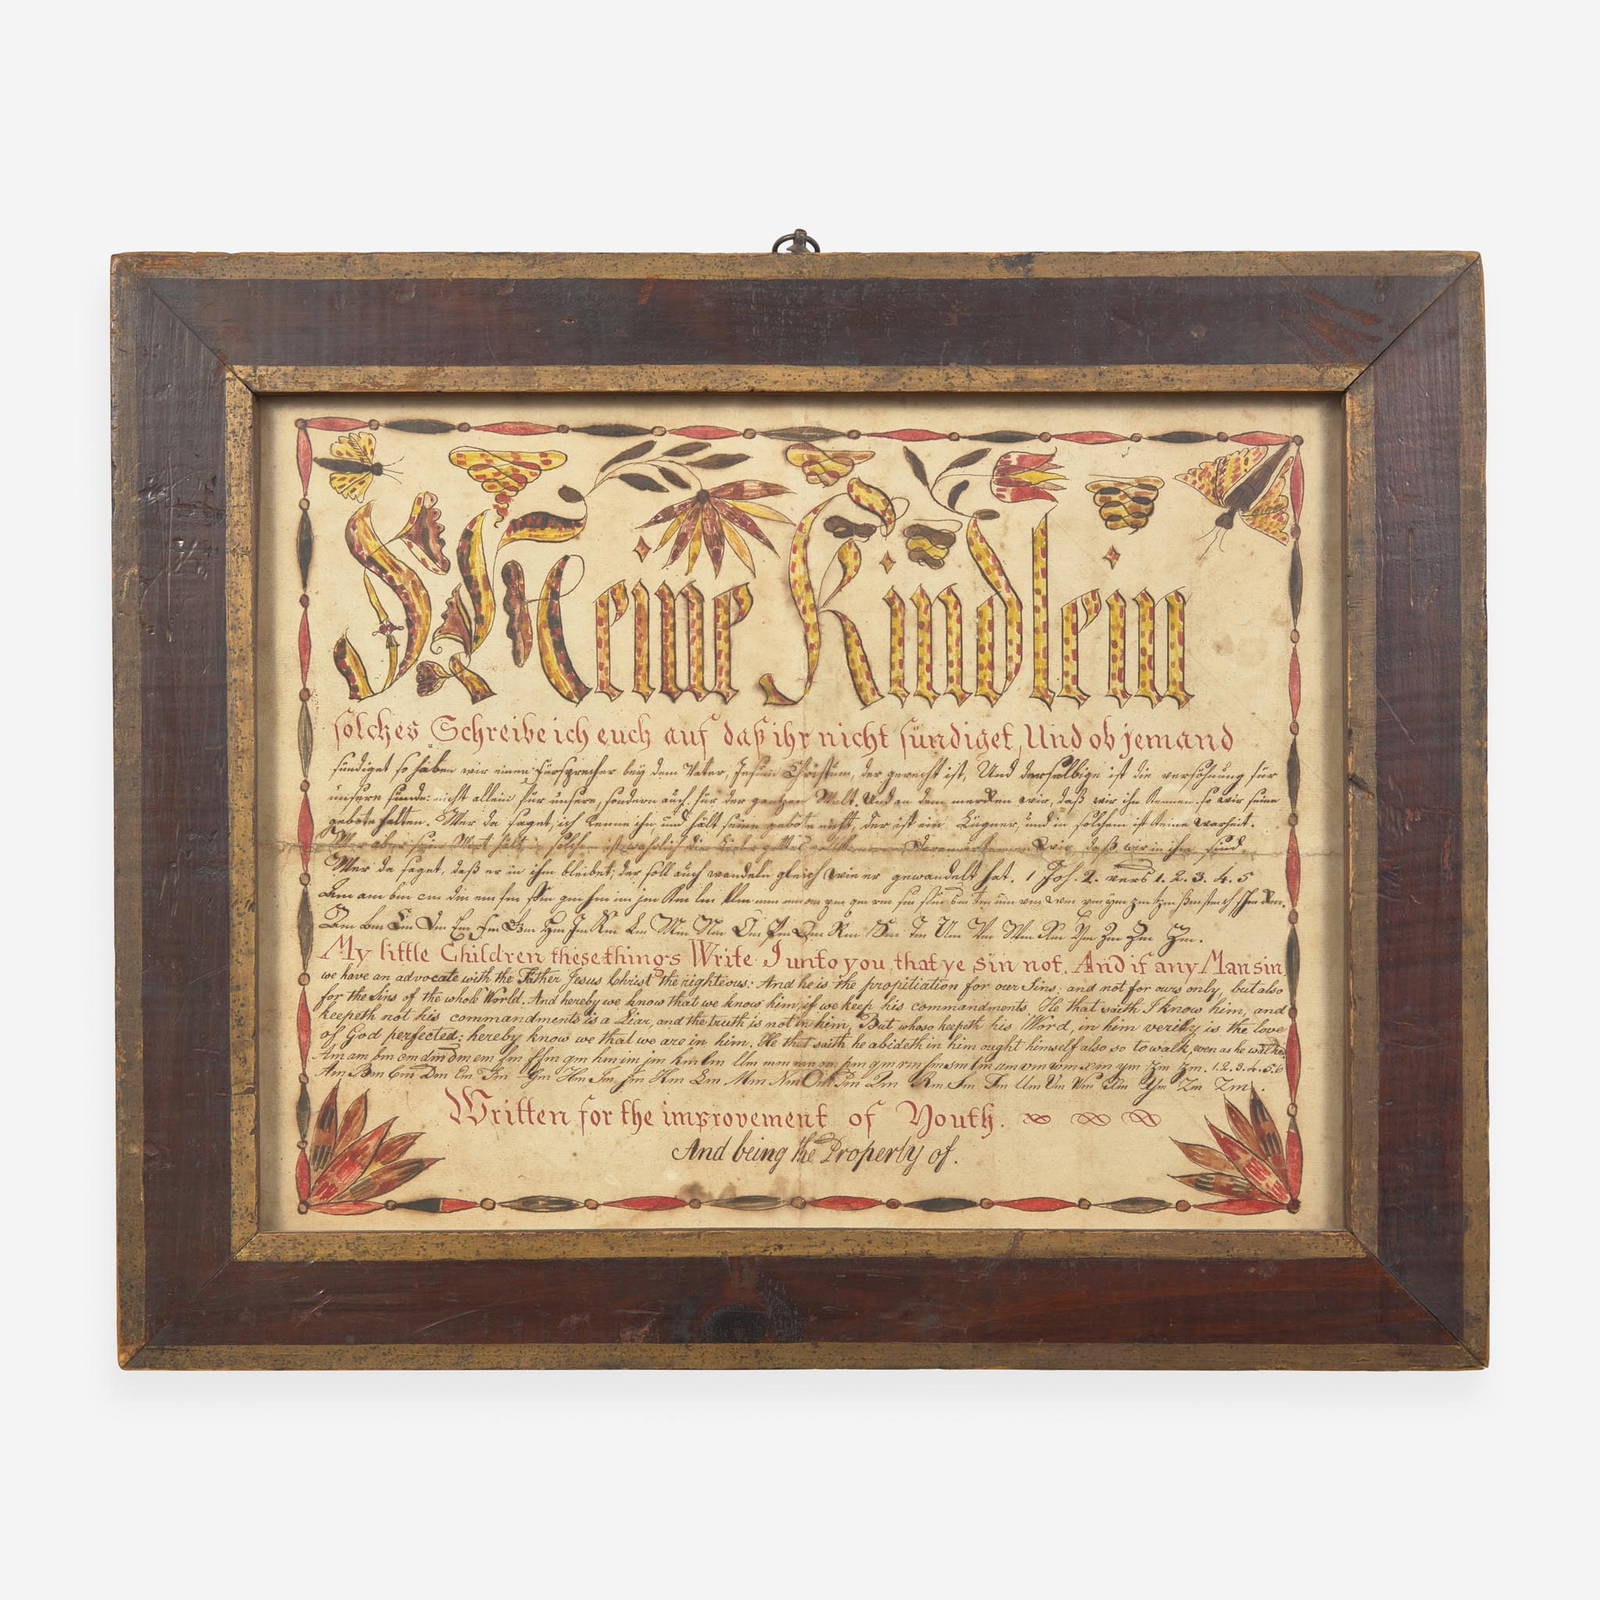 Meine Kindlein
solches Schreibe ich euch auf daß ihr nicht sündiget, Und ob jemand
sündiget so haben wir einen fürsprecher bey dem Vater, Jesum Christum, der gerecht ist, Und derselbige ist die versöhnung für
unsere sunde: nicht allein für unsere, sondern auch für der gantzen Welt. Und an dem merken wir, daß wir ihn kennen so wir seine
gebote halten. Wer da saget, ich kenne ihn, und hält seine gebote nicht, der ist ein Lügner, und in solchem ist keine warheit.
Wer aber sein Wort hält, in solchem ist warlich die liebe wir, daß wir in ihm sind.
Wer da saget, daß er in ihm bleibet; der soll auch wandeln gleich wie er gewandelt hat. 1 Joh. 2. vers 1. 2. 3. 4. 5
am bm cm dm em fm
Am Bm Cm Dm Em Fm Gm Hm Jm Km Lm Mm Nm Om Pm Qm Rm Sm Tm Um Vm Wm Xm Ym Zm
My little Children these things Write I unto you, that ye sin not. And if any Man sin,
we have an advocate with the Father Jesus Christ the righteous: And he is the propitiation for our Sins: and not for ours only, but also
for the Sins of the whole World. And hereby we know that we know him, if we keep his commandments, He that saith I know him, and
keepeth not his commandments is a Liar, and the truth is not in him, But whoso keepeth his Word, in him verily is the love
of God perfected: hereby know we that we are in him. He that saith he abideth in him ought himself also so to walk, even as he walked
Am am bm cm dm em fm ffm gm hm im jm km lm llm mm nm om pm qm rm sm tm um vm wm xm ym zm. 1. 2. 3. 4. 5. 6
Am Bm Cm Dm Em Fm Gm Hm Im Jm Km Lm Mm Nm Om Pm Qm Rm Sm Tm Um Vm Wm Xm Ym Zm
Written for the improvement of Youth.
And being the Property of.